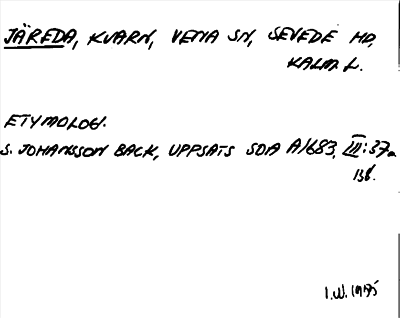 JÄREDA, KVARN, VENA SN, SEVEDE HD,
KALM. L.
ETYMOLOGI.
S. JOHANSSON BACK, UPPSATS SOA A1683, III:37a
13f.
I.W. 1975